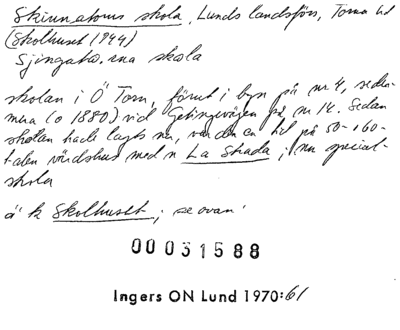 Skinnatorns skola, Lunds landsförs, Torna hd
(Skolhuset 1944)
skola
skolan i Ö Torn, förut i byn på nr 4, seder-
mera (o 1880) vid Getingevägen på nr 14. Sedan
skolan hade lagts ner, var den en tid på 50- o 60-
talen värdshus med n La Strada; nu special-
skola
ä' k Skolhuset; se ovan!
00031588
Ingers ON Lund 1970:61